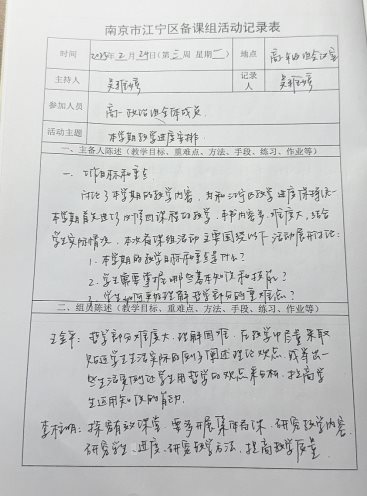 南京市江宁区备课组活动记录表
时间 2025年2月24日(第三周 星期一) 地点 高一年级会议室
主持人 记录人
参加人员 高一政治组全体成员
活动主题 本学期教学进度安排
一、主备人陈述(教学目标、重难点、方法、手段、练习、作业等)
一、工作目标和重点
讨论了本学期的教学内容,为和江宁区教学进度保持统一
本学期首先进行必修四课程的教学,本书内容多,难度大,结合
学生实际情况,本次备课组活动主要围绕以下活动展开讨论:
1.本学期的教学目标和重点是什么?
2.学生需要掌握哪些基本知识和技能?
3.学生如何更好理解哲学部分的重难点?
二、组员陈述(教学目标、重难点、方法、手段、练习、作业等)
哲学部分难度大,理解困难,在教学中尽量采取
贴近学生生活实际的例子阐述理论观点,或举出一
些生活实例让学生用哲学的观点来分析,提高学
生运用知识的能力。
探索有效课堂,要多开展集体备课,研究教学内容
研究学生、进度,研究教学方法,提高教学质量